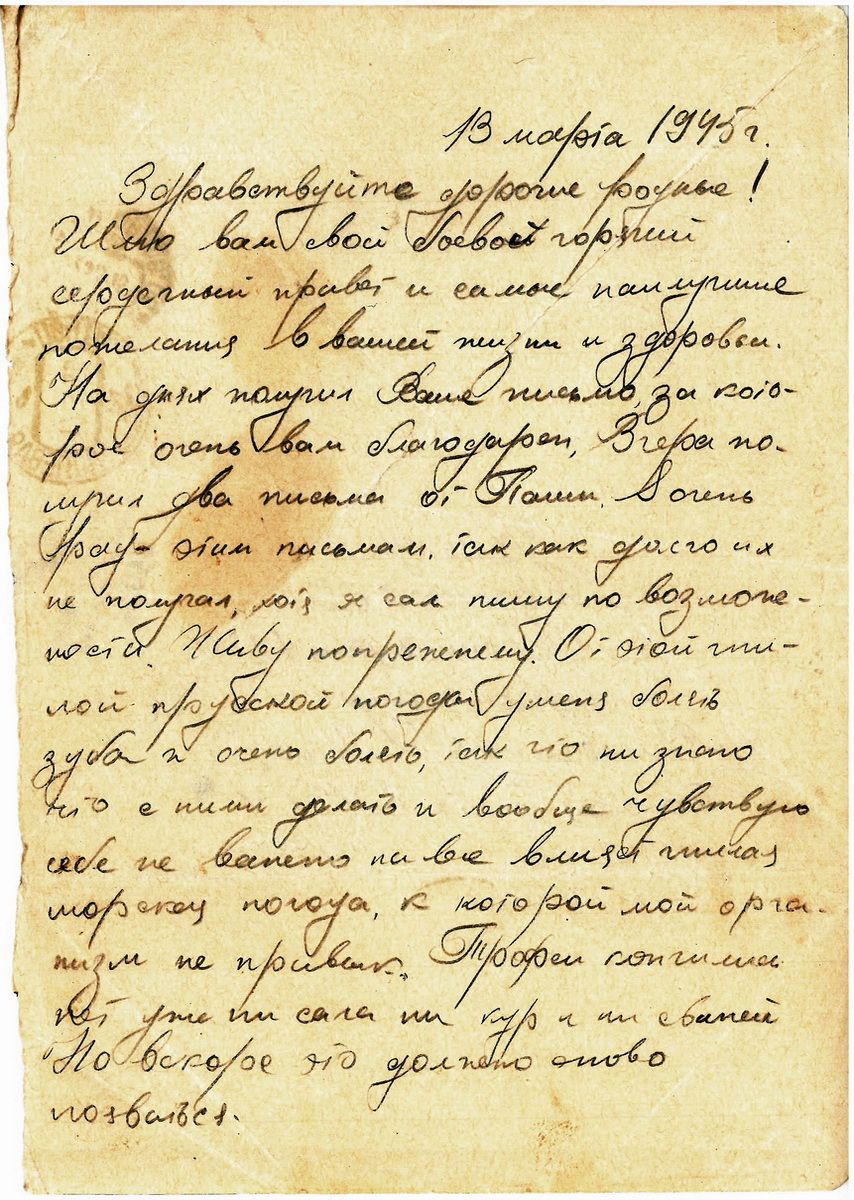 13 марта 1945 г.
Здравствуйте дорогие родные!
Шлю вам свой боевой горячий
сердечный привет и самые наилучшие
пожелания в вашей жизни и здоровьи.
На днях получил Ваше письмо, за кото-
рое очень вам благодарен, Вчера по-
лучил два письма от Паши. Я очень
рад этим письмам, так как долго их
не получал, хотя я сам пишу по возможе-
ности. Живу попрежнему. От этой гни-
лой прусской погоды у меня болят
зубы и очень болят, так что ни знаю
что с ними делать и вообще чувствую
себе не важно на все влияет гнилая
морская погода, к которой мой орга-
низм не привык. Трофеи кончились
нет уже ни сала ни кур и ни свиней
Но вскоре это должно снова
появиться.